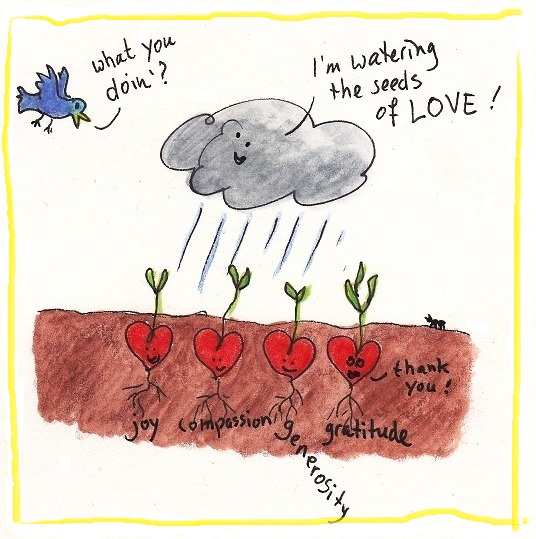 what you
doin'?
I'm watering
the seeds
of LOVE!
thank
you!
joy compassion generosity gratitude